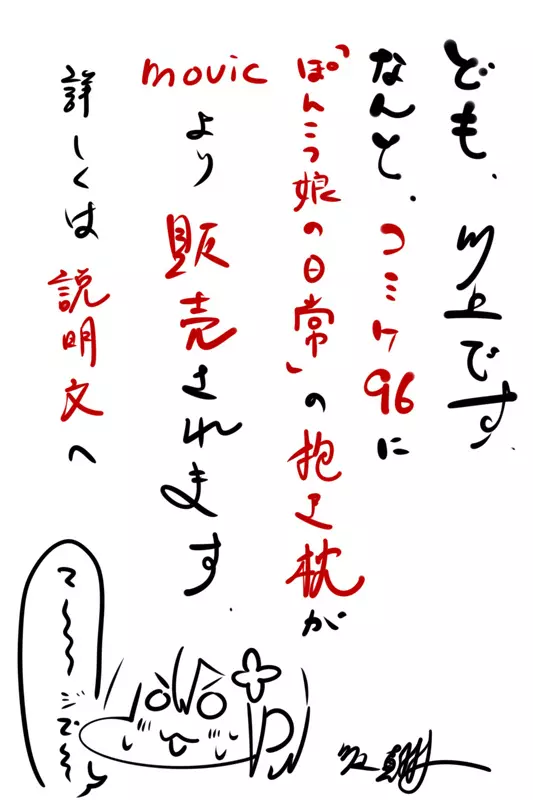 ども、川上です。
なんと、コミケ96に
「ぽんこつ娘の日常」の抱き枕が
movicより販売されます。
詳しくは説明文へ
て〜〜〜ジで〜